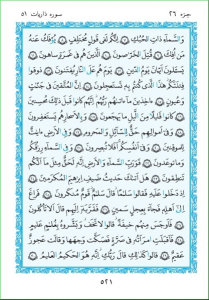 جزء ۲۶
سوره ذاریات ۵۱
وَٱلسَّمَآءِ ذَاتِ ٱلْحُبُكِ ٧ إِنَّكُمْ لَفِى قَوْلٍ مُّخْتَلِفٍ ٨ يُؤْفَكُ عَنْهُ
مَنْ أُفِكَ ٩ قُتِلَ ٱلْخَرَّٰصُونَ ١٠ ٱلَّذِينَ هُمْ فِى غَمْرَةٍ سَاهُونَ ١١
يَسْـَٔلُونَ أَيَّانَ يَوْمُ ٱلدِّينِ ١٢ يَوْمَ هُمْ عَلَى ٱلنَّارِ يُفْتَنُونَ ١٣
ذُوقُوا۟ فِتْنَتَكُمْ هَٰذَا ٱلَّذِى كُنتُم بِهِۦ تَسْتَعْجِلُونَ ١٤ إِنَّ ٱلْمُتَّقِينَ فِى جَنَّٰتٍ
وَعُيُونٍ ١٥ ءَاخِذِينَ مَآ ءَاتَىٰهُمْ رَبُّهُمْ إِنَّهُمْ كَانُوا۟ قَبْلَ ذَٰلِكَ مُحْسِنِينَ ١٦
كَانُوا۟ قَلِيلًا مِّنَ ٱلَّيْلِ مَا يَهْجَعُونَ ١٧ وَبِٱلْأَسْحَارِ هُمْ يَسْتَغْفِرُونَ ١٨
وَفِىٓ أَمْوَٰلِهِمْ حَقٌّ لِّلسَّآئِلِ وَٱلْمَحْرُومِ ١٩ وَفِى ٱلْأَرْضِ ءَايَٰتٌ
لِّلْمُوقِنِينَ ٢٠ وَفِىٓ أَنفُسِكُمْ أَفَلَا تُبْصِرُونَ ٢١ وَفِى ٱلسَّمَآءِ رِزْقُكُمْ
وَمَا تُوعَدُونَ ٢٢ فَوَرَبِّ ٱلسَّمَآءِ وَٱلْأَرْضِ إِنَّهُۥ لَحَقٌّ مِّثْلَ مَآ أَنَّكُمْ
تَنطِقُونَ ٢٣ هَلْ أَتَىٰكَ حَدِيثُ ضَيْفِ إِبْرَٰهِيمَ ٱلْمُكْرَمِينَ ٢٤
إِذْ دَخَلُوا۟ عَلَيْهِ فَقَالُوا۟ سَلَٰمًا قَالَ سَلَٰمٌ قَوْمٌ مُّنكَرُونَ ٢٥ فَرَاغَ
إِلَىٰٓ أَهْلِهِۦ فَجَآءَ بِعِجْلٍ سَمِينٍ ٢٦ فَقَرَّبَهُۥٓ إِلَيْهِمْ قَالَ أَلَا تَأْكُلُونَ ٢٧
فَأَوْجَسَ مِنْهُمْ خِيفَةً قَالُوا۟ لَا تَخَفْ وَبَشَّرُوهُ بِغُلَٰمٍ عَلِيمٍ ٢٨
فَأَقْبَلَتِ ٱمْرَأَتُهُۥ فِى صَرَّةٍ فَصَكَّتْ وَجْهَهَا وَقَالَتْ عَجُوزٌ
عَقِيمٌ ٢٩ قَالُوا۟ كَذَٰلِكِ قَالَ رَبُّكِ إِنَّهُۥ هُوَ ٱلْحَكِيمُ ٱلْعَلِيمُ ٣٠
٥٢١